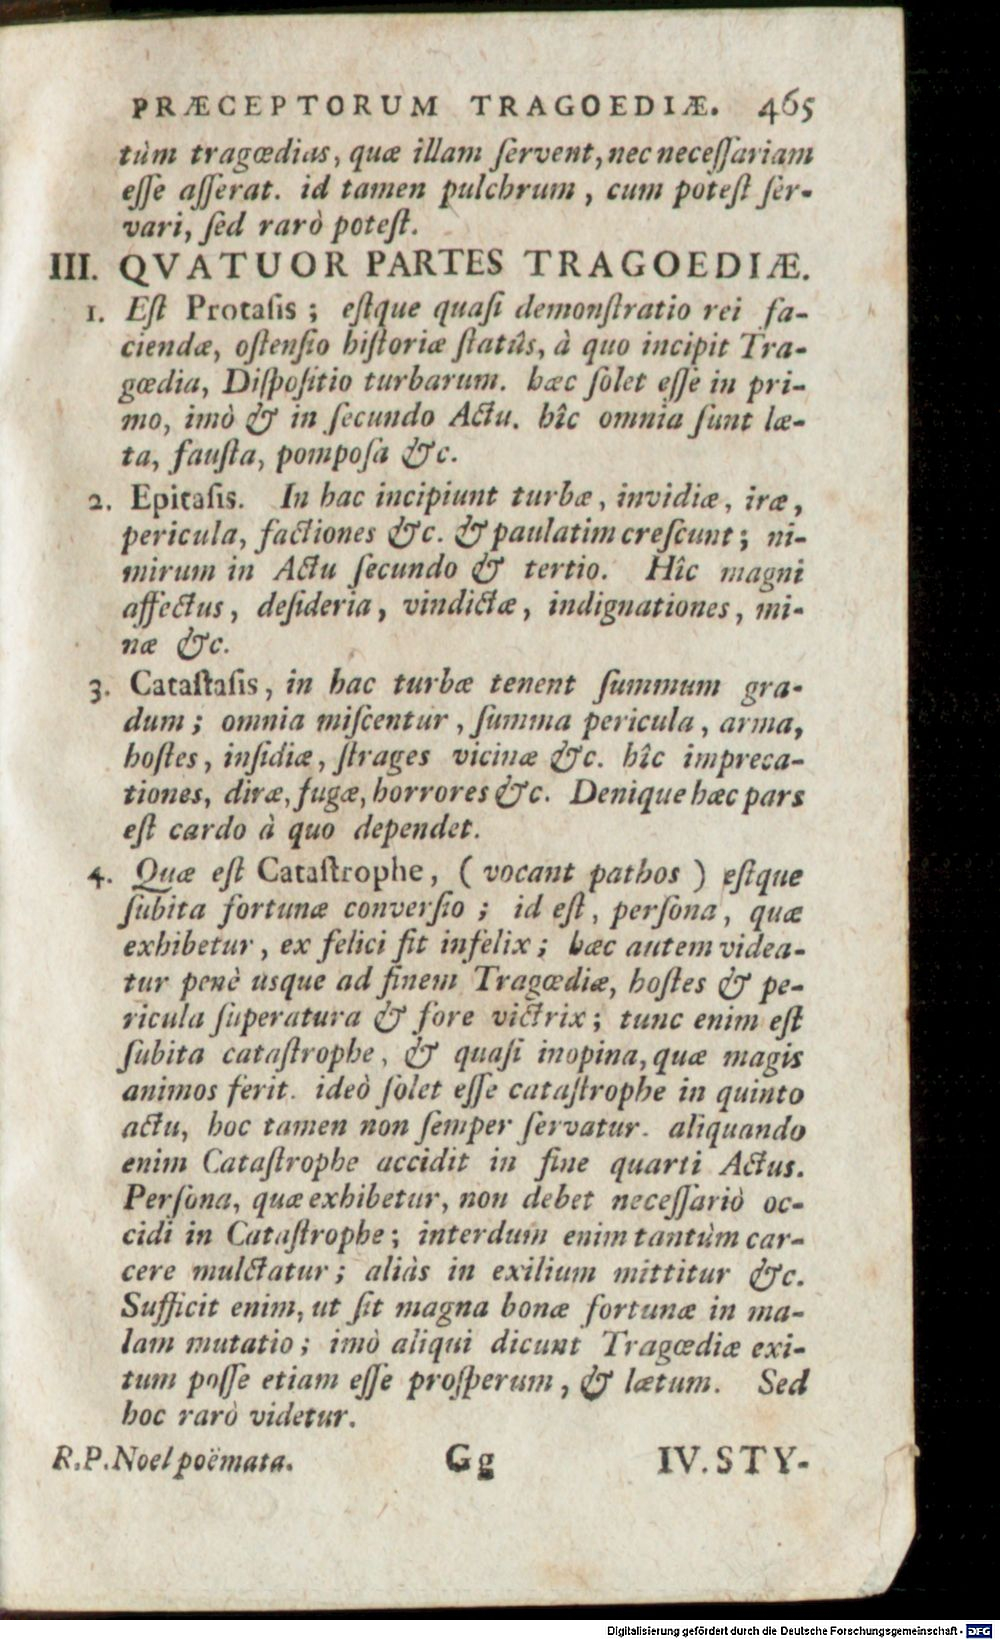 PRÆCEPTORUM TRAGOEDIÆ. 465
tùm tragœdias, quæ illam ſervent, nec neceſſariam
eſſe aſſerat. id tamen pulchrum, cum poteſt ſer-
vari, ſed rarò poteſt.
III. QVATUOR PARTES TRAGOEDIÆ.
1. Eſt Protaſis; eſtque quaſi demonſtratio rei fa-
ciendæ, oſtenſio hiſtoriæ ſtatûs, à quo incipit Tra-
gœdia, Diſpoſitio turbarum. hæc ſolet eſſe in pri-
mo, imò & in ſecundo Actu. hîc omnia ſunt læ-
ta, fauſta, pompoſa &c.
2. Epitaſis. In hac incipiunt turbæ, invidiæ, iræ,
pericula, factiones &c. & paulatim creſcunt; ni-
mirum in Actu ſecundo & tertio. Hîc magni
affectus, deſideria, vindictæ, indignationes, mi-
næ &c.
3. Cataſtaſis, in hac turbæ tenent ſummum gra-
dum; omnia miſcentur, ſumma pericula, arma,
hoſtes, inſidiæ, ſtrages vicinæ &c. hîc impreca-
tiones, diræ, fugæ, horrores &c. Denique hæc pars
eſt cardo à quo dependet.
4. Quæ eſt Cataſtrophe, (vocant pathos) eſtque
ſubita fortunæ converſio; id eſt, perſona, quæ
exhibetur, ex felici fit infelix; hæc autem videa-
tur penè usque ad finem Tragœdiæ, hoſtes & pe-
ricula ſuperatura & fore victrix; tunc enim eſt
ſubita cataſtrophe, & quaſi inopina, quæ magis
animos ferit. ideò ſolet eſſe cataſtrophe in quinto
actu, hoc tamen non ſemper ſervatur. aliquando
enim Cataſtrophe accidit in fine quarti Actus.
Perſona, quæ exhibetur, non debet neceſſariò oc-
cidi in Cataſtrophe; interdum enim tantùm car-
cere mulctatur; aliàs in exilium mittitur &c.
Sufficit enim, ut ſit magna bonæ fortunæ in ma-
lam mutatio; imò aliqui dicunt Tragœdiæ exi-
tum poſſe etiam eſſe proſperum, & lætum. Sed
hoc rarò videtur.
R. P. Noel poëmata. Gg IV. STY-
Digitalisierung gefördert durch die Deutsche Forschungsgemeinschaft - DFG